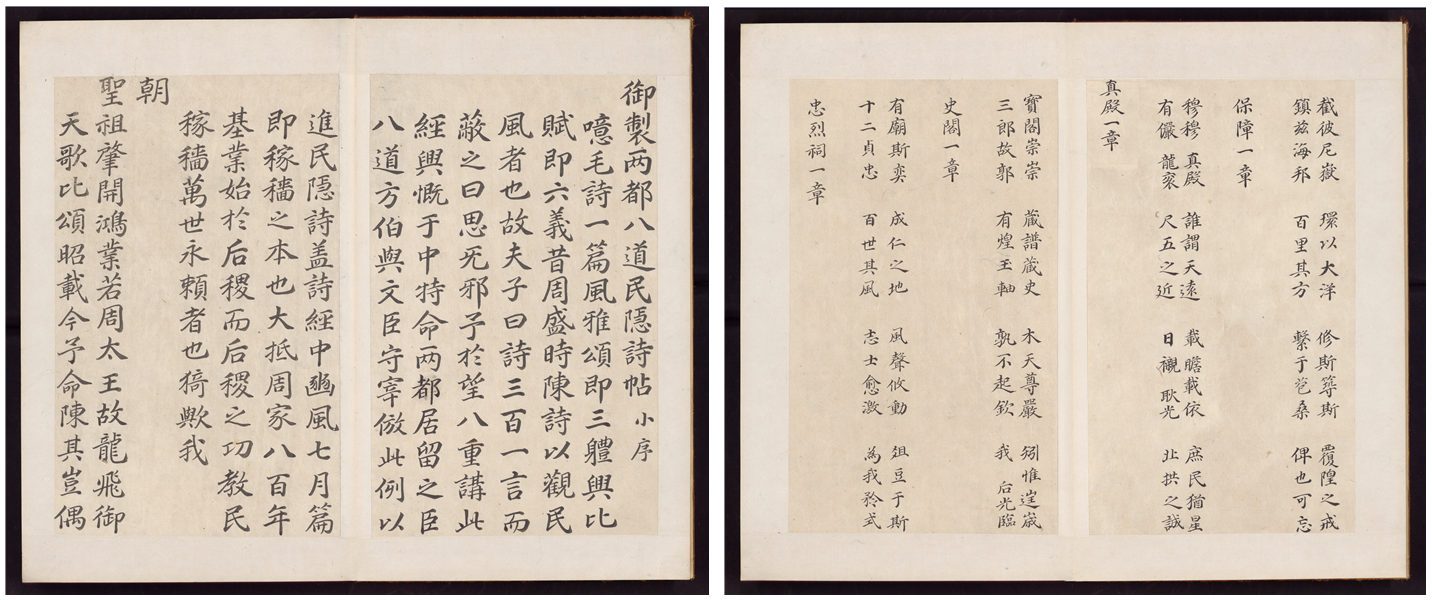 御製兩都八道民隱詩帖 小序
噫毛詩一篇風雅頌即三體興比
賦即六義昔周盛時陳詩以觀民
風者也故夫子曰詩三百一言而
蔽之曰思无邪予於望八重講此
經興慨于中特命兩都居留之臣
八道方伯與文臣守宰倣此例以
進民隱詩盖詩經中豳風七月篇
即稼穡之本也大抵周家八百年
基業始於后稷而后稷之功教民
稼穡萬世永賴者也猗歟我
朝
聖祖肇開鴻業若周太王故龍飛御
天歌比頌昭載今予命陳其豈偶
巀彼尼嶽 環以大洋 修斯築斯 覆隍之戒
鎮茲海邦 百里其方 繫于苞桑 俾也可忘
保障一章
穆穆 真殿 誰謂天遠 載瞻載依 庶民猶星
有儼 龍衮 尺五之近 日襯耿光 北拱之誠
真殿一章
寶閣崇崇 蔵譜蔵史 木天尊嚴 矧惟迬歲
三郎故郭 有煌玉軸 孰不起欽 我 后光臨
史閣一章
有廟斯奕 成仁之地 風聲攸動 俎豆于斯
十二貞忠 百世其風 志士愈激 為我矜式
忠烈祠一章